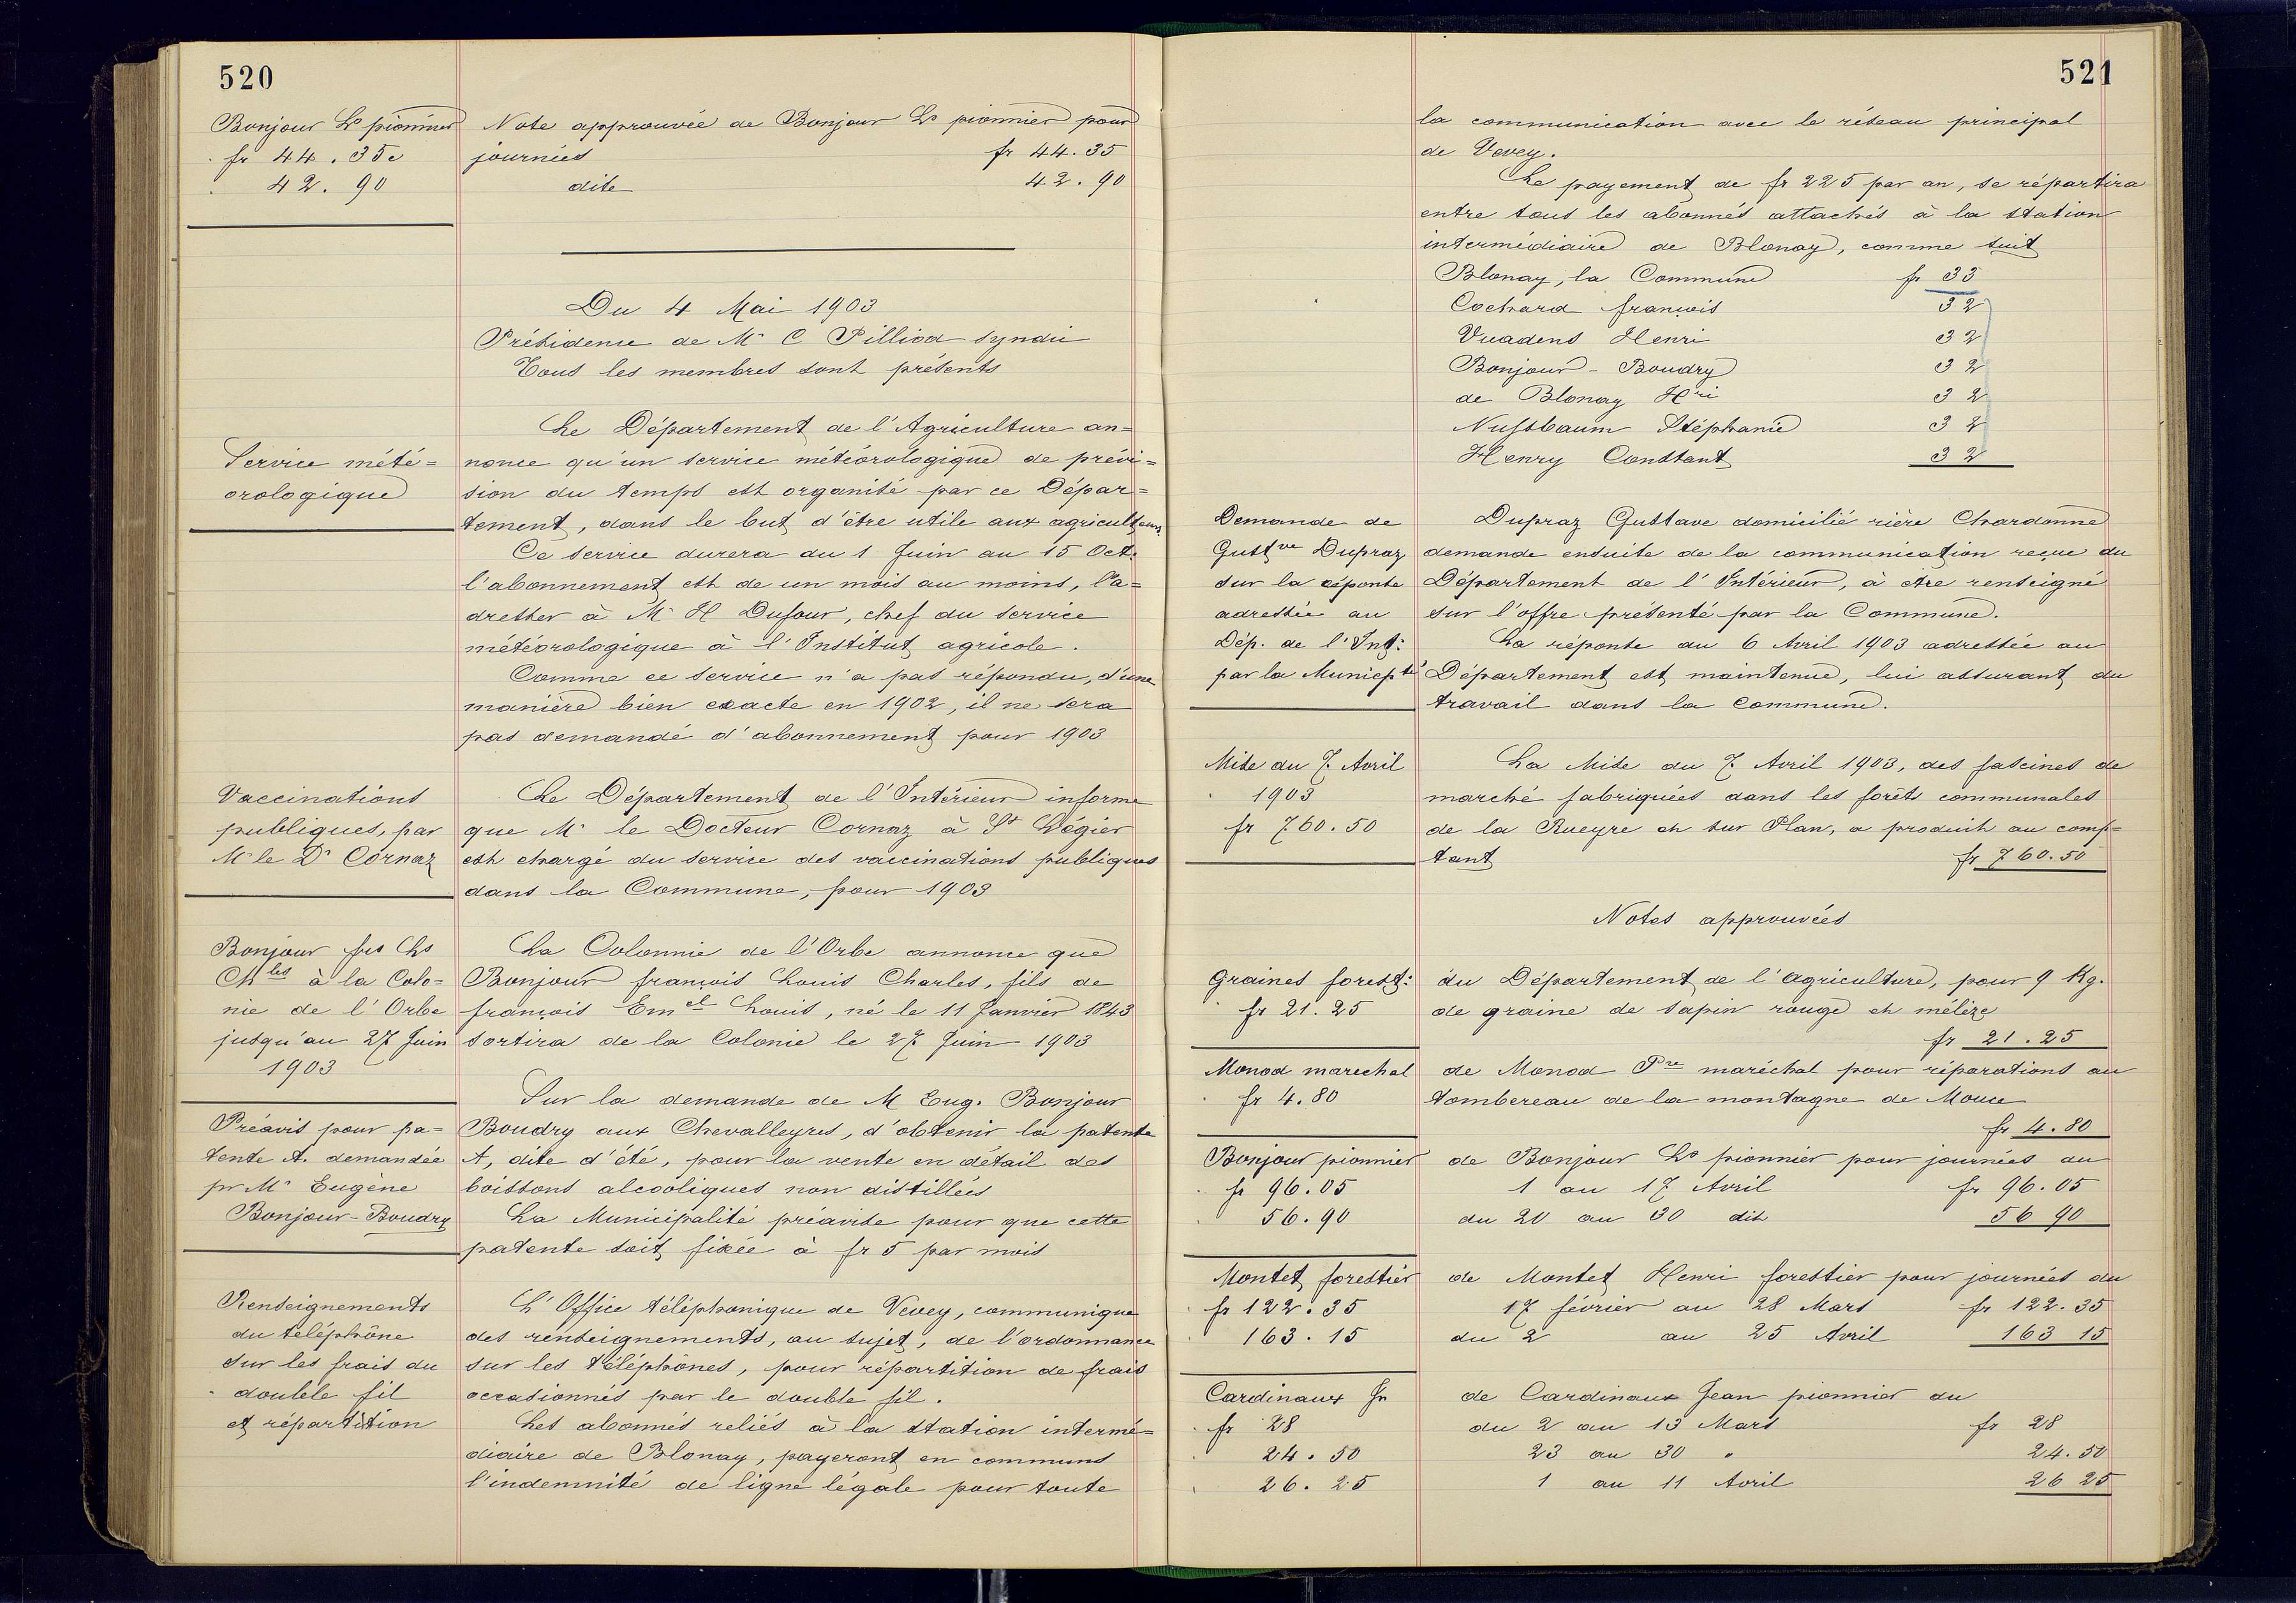 520
Bonjour Ls pionnier
fr 44.35c
42.90
Note approuvée de Bonjour Ls pionnier pour
journées fr 44.35
dite 42.90
Du 4 Mai 1903
Présidence de Mr C Pilliod syndic
Tous les membres sont présents
Service mété=
orologique
Le Département de l'Agriculture an=
nonce qu'un service météorologique de prévi=
sion du temps est organisé par ce Dépar=
tement, dans le but d'être utile aux agriculteurs
Ce service durera du 1 Juin au 15 Oct.
l'abonnement est de un mois au moins, s'a=
dresser à Mr H Dufour, chef du service
météorologique à l'Institut agricole.
Comme ce service n'a pas répondu, d'une
manière bien exacte en 1902, il ne sera
pas demandé d'abonnement pour 1903
Vaccinations
publiques, par
Mr le Dr Cornaz
Le Département de l'Intérieur informe
que Mr le Docteur Cornaz à St Légier
est chargé du service des vaccinations publiques
dans la Commune, pour 1903
Bonjour fçs Ls
Chles à la Colo=
nie de l'Orbe
jusqu'au 27 Juin
1903
La Colonnie de l'Orbe annonce que
Bonjour françois Louis Charles, fils de
françois Emel Louis, né le 11 Janvier 1843
sortira de la Colonie le 27 Juin 1903
Préavis pour pa=
tente A. demandée
pr Mr Eugène
Bonjour-Boudry
Sur la demande de M Eug. Bonjour
Boudry aux Chevalleyres, d'obtenir la patente
A, dite d'été, pour la vente en détail des
boissons alcooliques non distillées
La Municipalité préavise pour que cette
patente soit fixée à fr 5 par mois
Renseignements
du teléphône
sur les frais du
double fil
et répartition
L'Office téléphonique de Vevey, communique
des renseignements, au sujet, de l'ordonnance
sur les téléphônes, pour répartition de frais
occasionnés par le double fil.
Les abonnés reliés à la station intermé=
diaire de Blonay, payeront en communs
l'indemnité de ligne légale pour toute
521
la communication avec le réseau principal
de Vevey.
Le payement de fr 225 par an, se répartira
entre tous les abonnés attachés à la station
intermédiaire de Blonay, comme suit
Blonay, la Commune fr 33
Cochard françois 32
Vuadens Henri 32
Bonjour - Boudry 32
de Blonay Hri 32
Nussbaum Stéphanie 32
Henry Constant 32
Demande de
Gustve Dupraz
sur la réponse
adressée au
Dép. de l'Int:
par la Municipté
Dupraz Gustave domicilié rière Chardonne
demande ensuite de la communication reçue du
Département de l'Intérieur, à être renseigné
sur l'offre présenté par la Commune.
La réponse du 6 Avril 1903 adressée au
Département est maintenue, lui assurant du
travail dans la Commune.
Mise du 7. Avril
1903
fr 760.50
La Mise du 7 Avril 1903, des fascines de
marché fabriquées dans les forêts communales
de la Rueyre et sur Plan, a produit au comp=
tant fr 760.50
Notes approuvées
Graines forest:
fr 21.25
du Département de l'agriculture, pour 9 Kg.
de graine de sapin rouge et mélèze
fr 21.25
Monod marechal
fr 4.80
de Monod Pre maréchal pour réparations au
tombereau de la montagne de Mouce
fr 4.80
Bonjour pionnier
fr 96.05
56.90
de Bonjour Ls pionnier pour journées du
1 au 17 Avril fr 96.05
du 20 au 30 dit 56 90
Montet forestier
fr 122.35
163.15
de Montet Henri forestier pour journées du
17 février au 28 Mars fr 122.35
du 2 au 25 Avril 163 15
Cardinaux Jn
fr 28
24.50
26.25
de Cardinaux Jean pionnier du
du 2 au 13 Mars fr 28
23 au 30 " 24.50
1 au 11 Avril 26 25